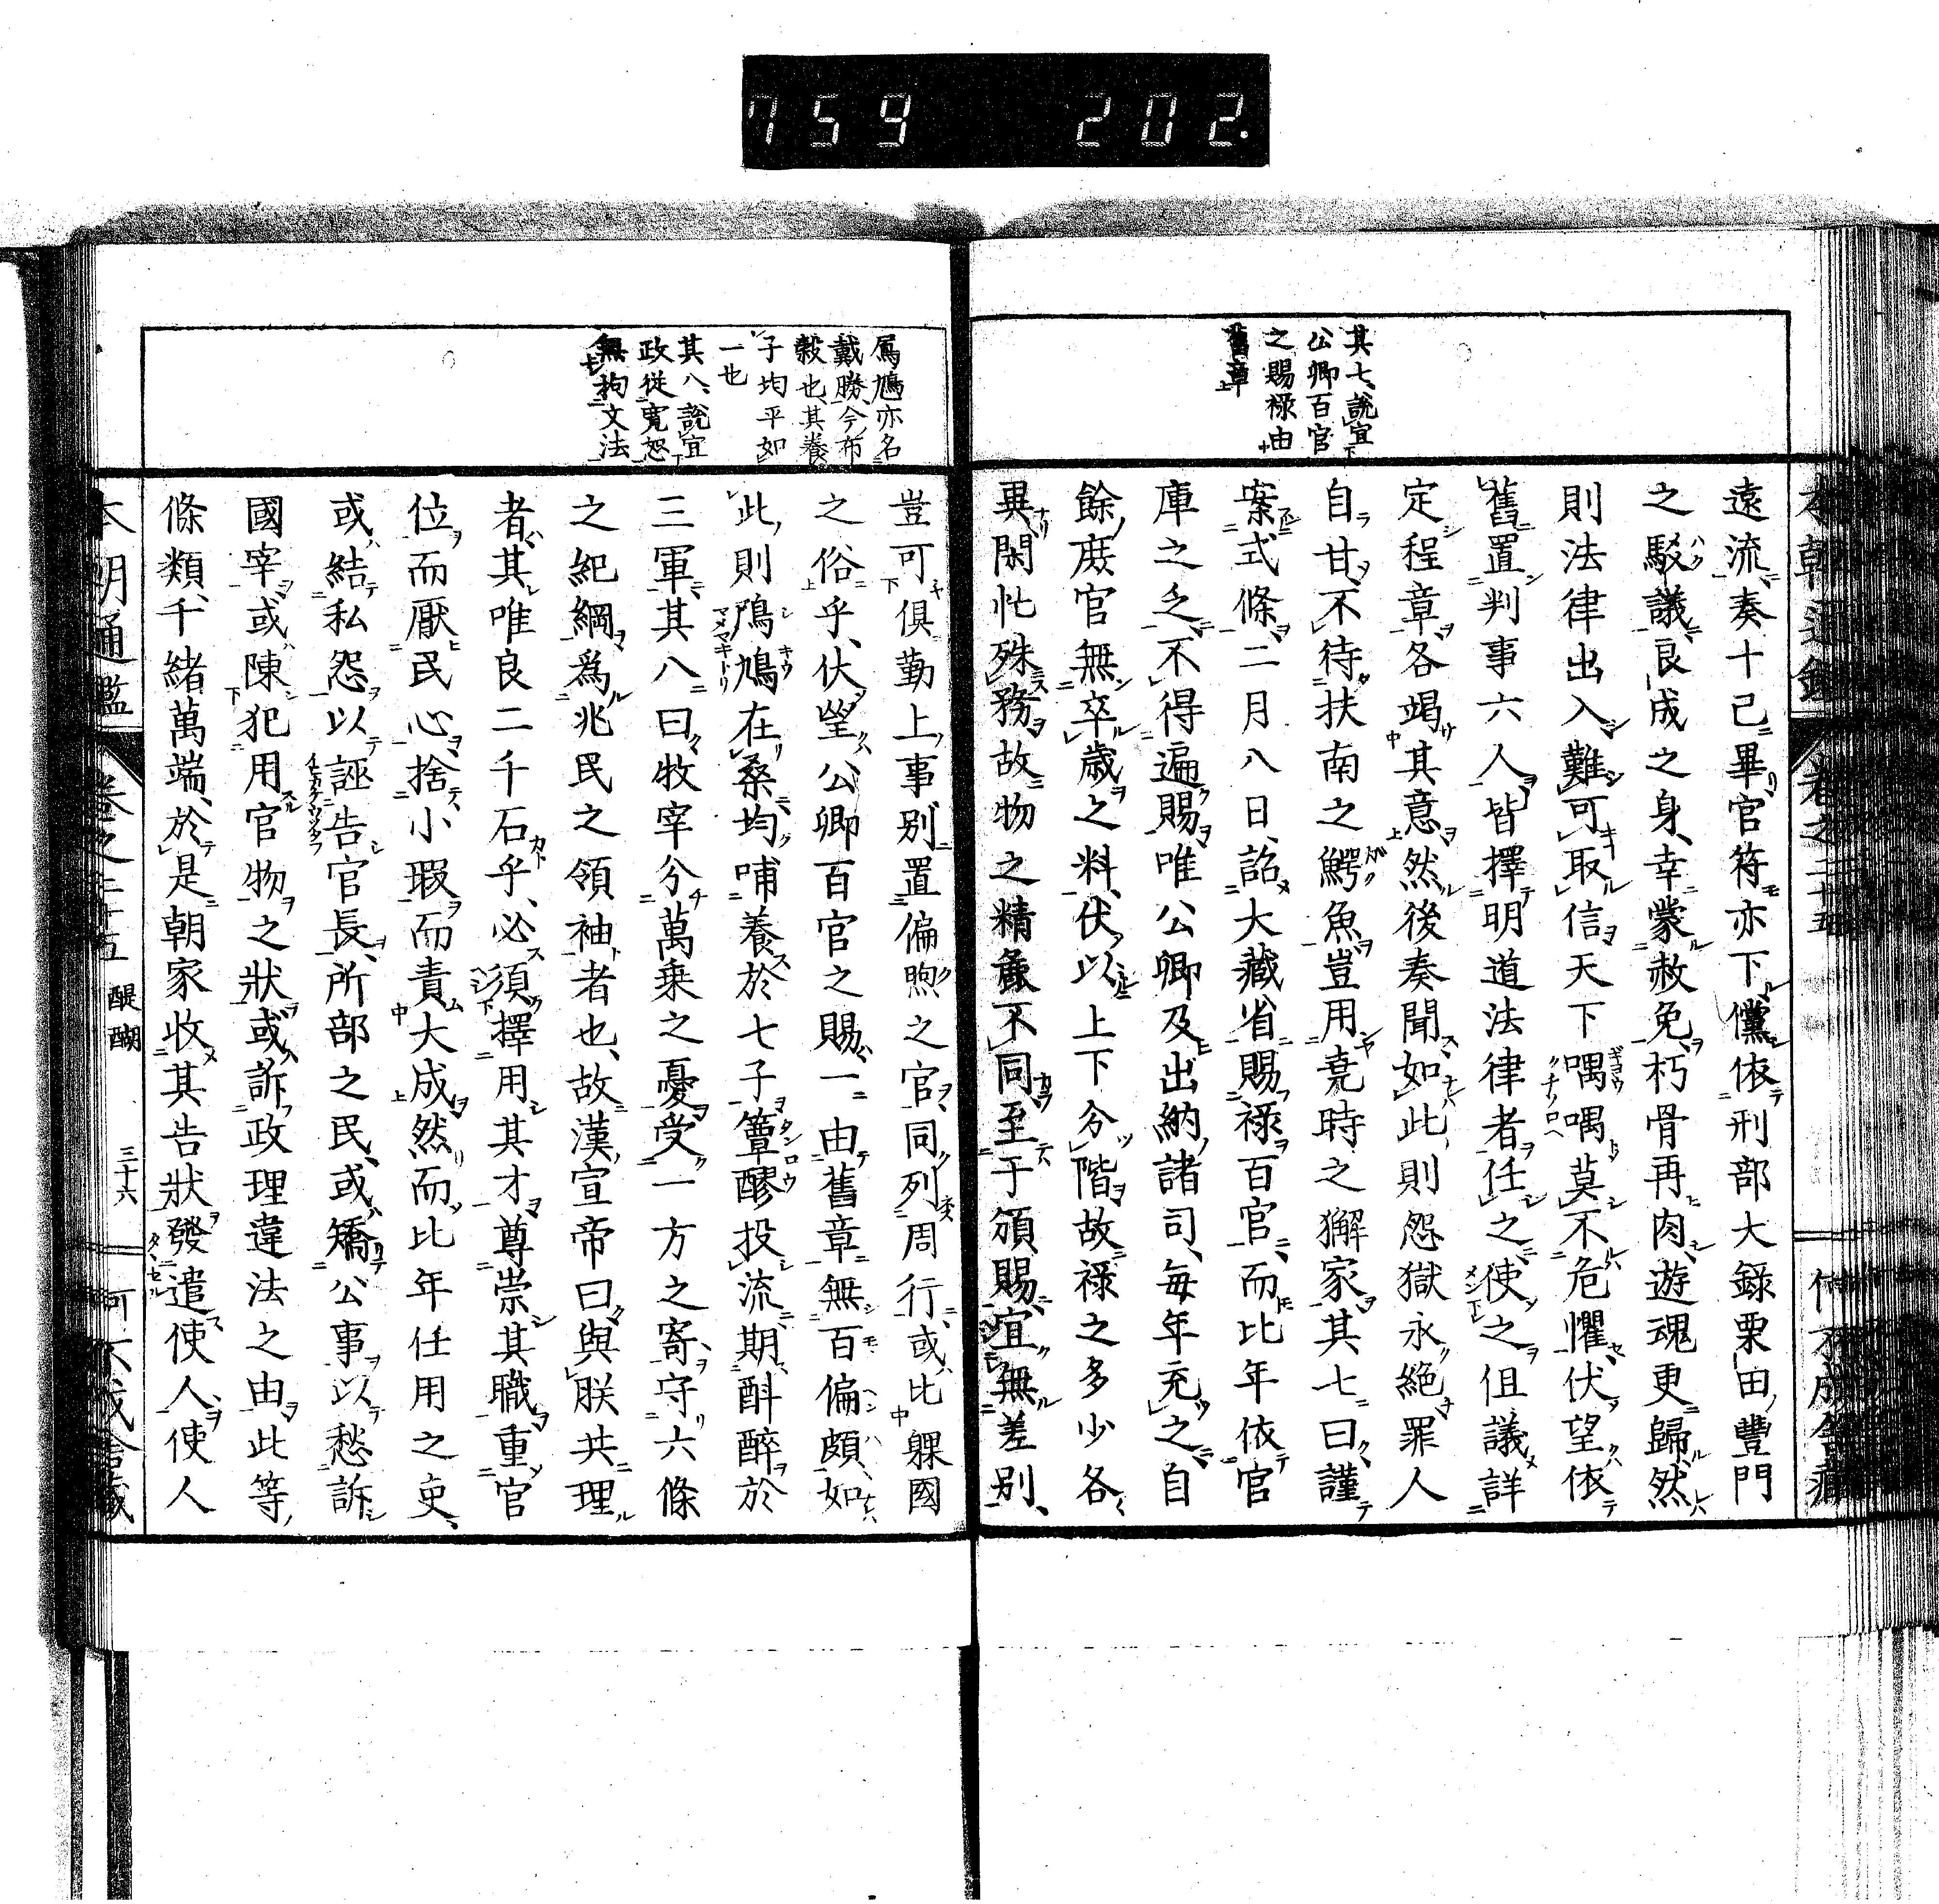 759 202.
其七、說宜
公卿百官
之賜祿由
舊章
遠流、奏十已畢、官符亦下、儻依刑部大錄粟田豐門
之駁議、良成之身、幸蒙赦免、朽骨再肉、遊魂更歸、然
則法律出入、難可取信、天下喁喁、莫不危懼、伏望依
舊置判事六人、皆擇明道法律者任之、使之俱議詳
定程章、各竭其意、然後奏聞、如此、則怨獄永絕、罪人
自甘、不待扶南之鰐魚、豈用堯時之獬豸、其七曰、謹
案式條、二月八日、詔大藏省、賜祿百官、而比年依官
庫之乏、不得遍賜、唯公卿及出納諸司、每年充之、自
餘庶官、無卒歲之料、伏以上下分階、故祿之多少各
異、閑忙殊務、故物之精麁不同、至于頒賜、宜無差別、
鳲鳩亦名
戴勝、今布
穀也、其養
子均平如
一也
其八、說宜
政從寬恕
無拘文法
豈可俱勤上事、別置偏煦之官、同列周行、或比躶國
之俗乎、伏望、公卿百官之賜、一由舊章、無百偏頗、如
此、則鳲鳩在桑、均哺養於七子、簞醪投流、期酣醉於
三軍、其八曰、牧宰分萬乘之憂、受一方之寄、守六條
之紀綱、爲兆民之領袖者也、故漢宣帝曰、與朕共理
者、其唯良二千石乎、必須擇用其才、尊崇其職、重官
位而厭民心、捨小瑕而責大成、然而比年任用之吏、
或結私怨、以誣告官長、所部之民、或矯公事、以愁訴
國宰、或陳犯用官物之狀、或訴政理違法之由、此等
條類、千緒萬端、於是朝家收其告狀、發遣使人、使人
本朝通鑑 卷之二十五 醍醐 三十六